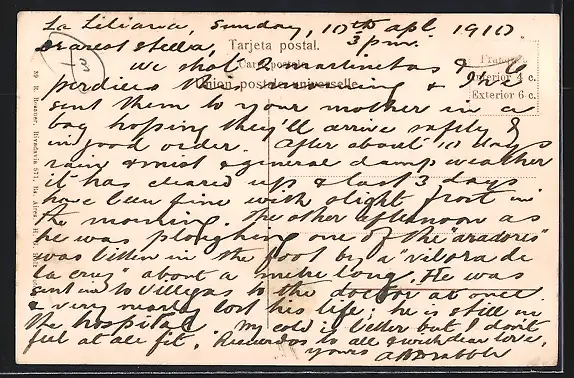 La Liliana, Sunday, 10th apl. 1910.
3 p.m.
Dearest Stella,
Tarjeta postal.
Carte postale
Union postale universelle
Franqueo
Interior 4 c.
Exterior 6 c.
we shot 2 martinetas & 6
perdices this morning & I've
sent them to your mother in a
bag hoping they'll arrive safely &
in good order. After about 10 days
rain & mist & general damp weather
it has cleared up & last 3 days
have been fine with slight frost in
the morning. The other afternoon as
he was ploughing one of the "aradores"
was bitten in the foot by a "vibora de
la cruz" about a metre long. He was
sent in to Villegas to the doctor at once
& very nearly lost his life; he is still in
the hospital. My cold is better but I don't
feel at all fit. Recuerdos to all & with dear love,
yours
R. Rosauer, Rivadavia 571, Bs. Aires